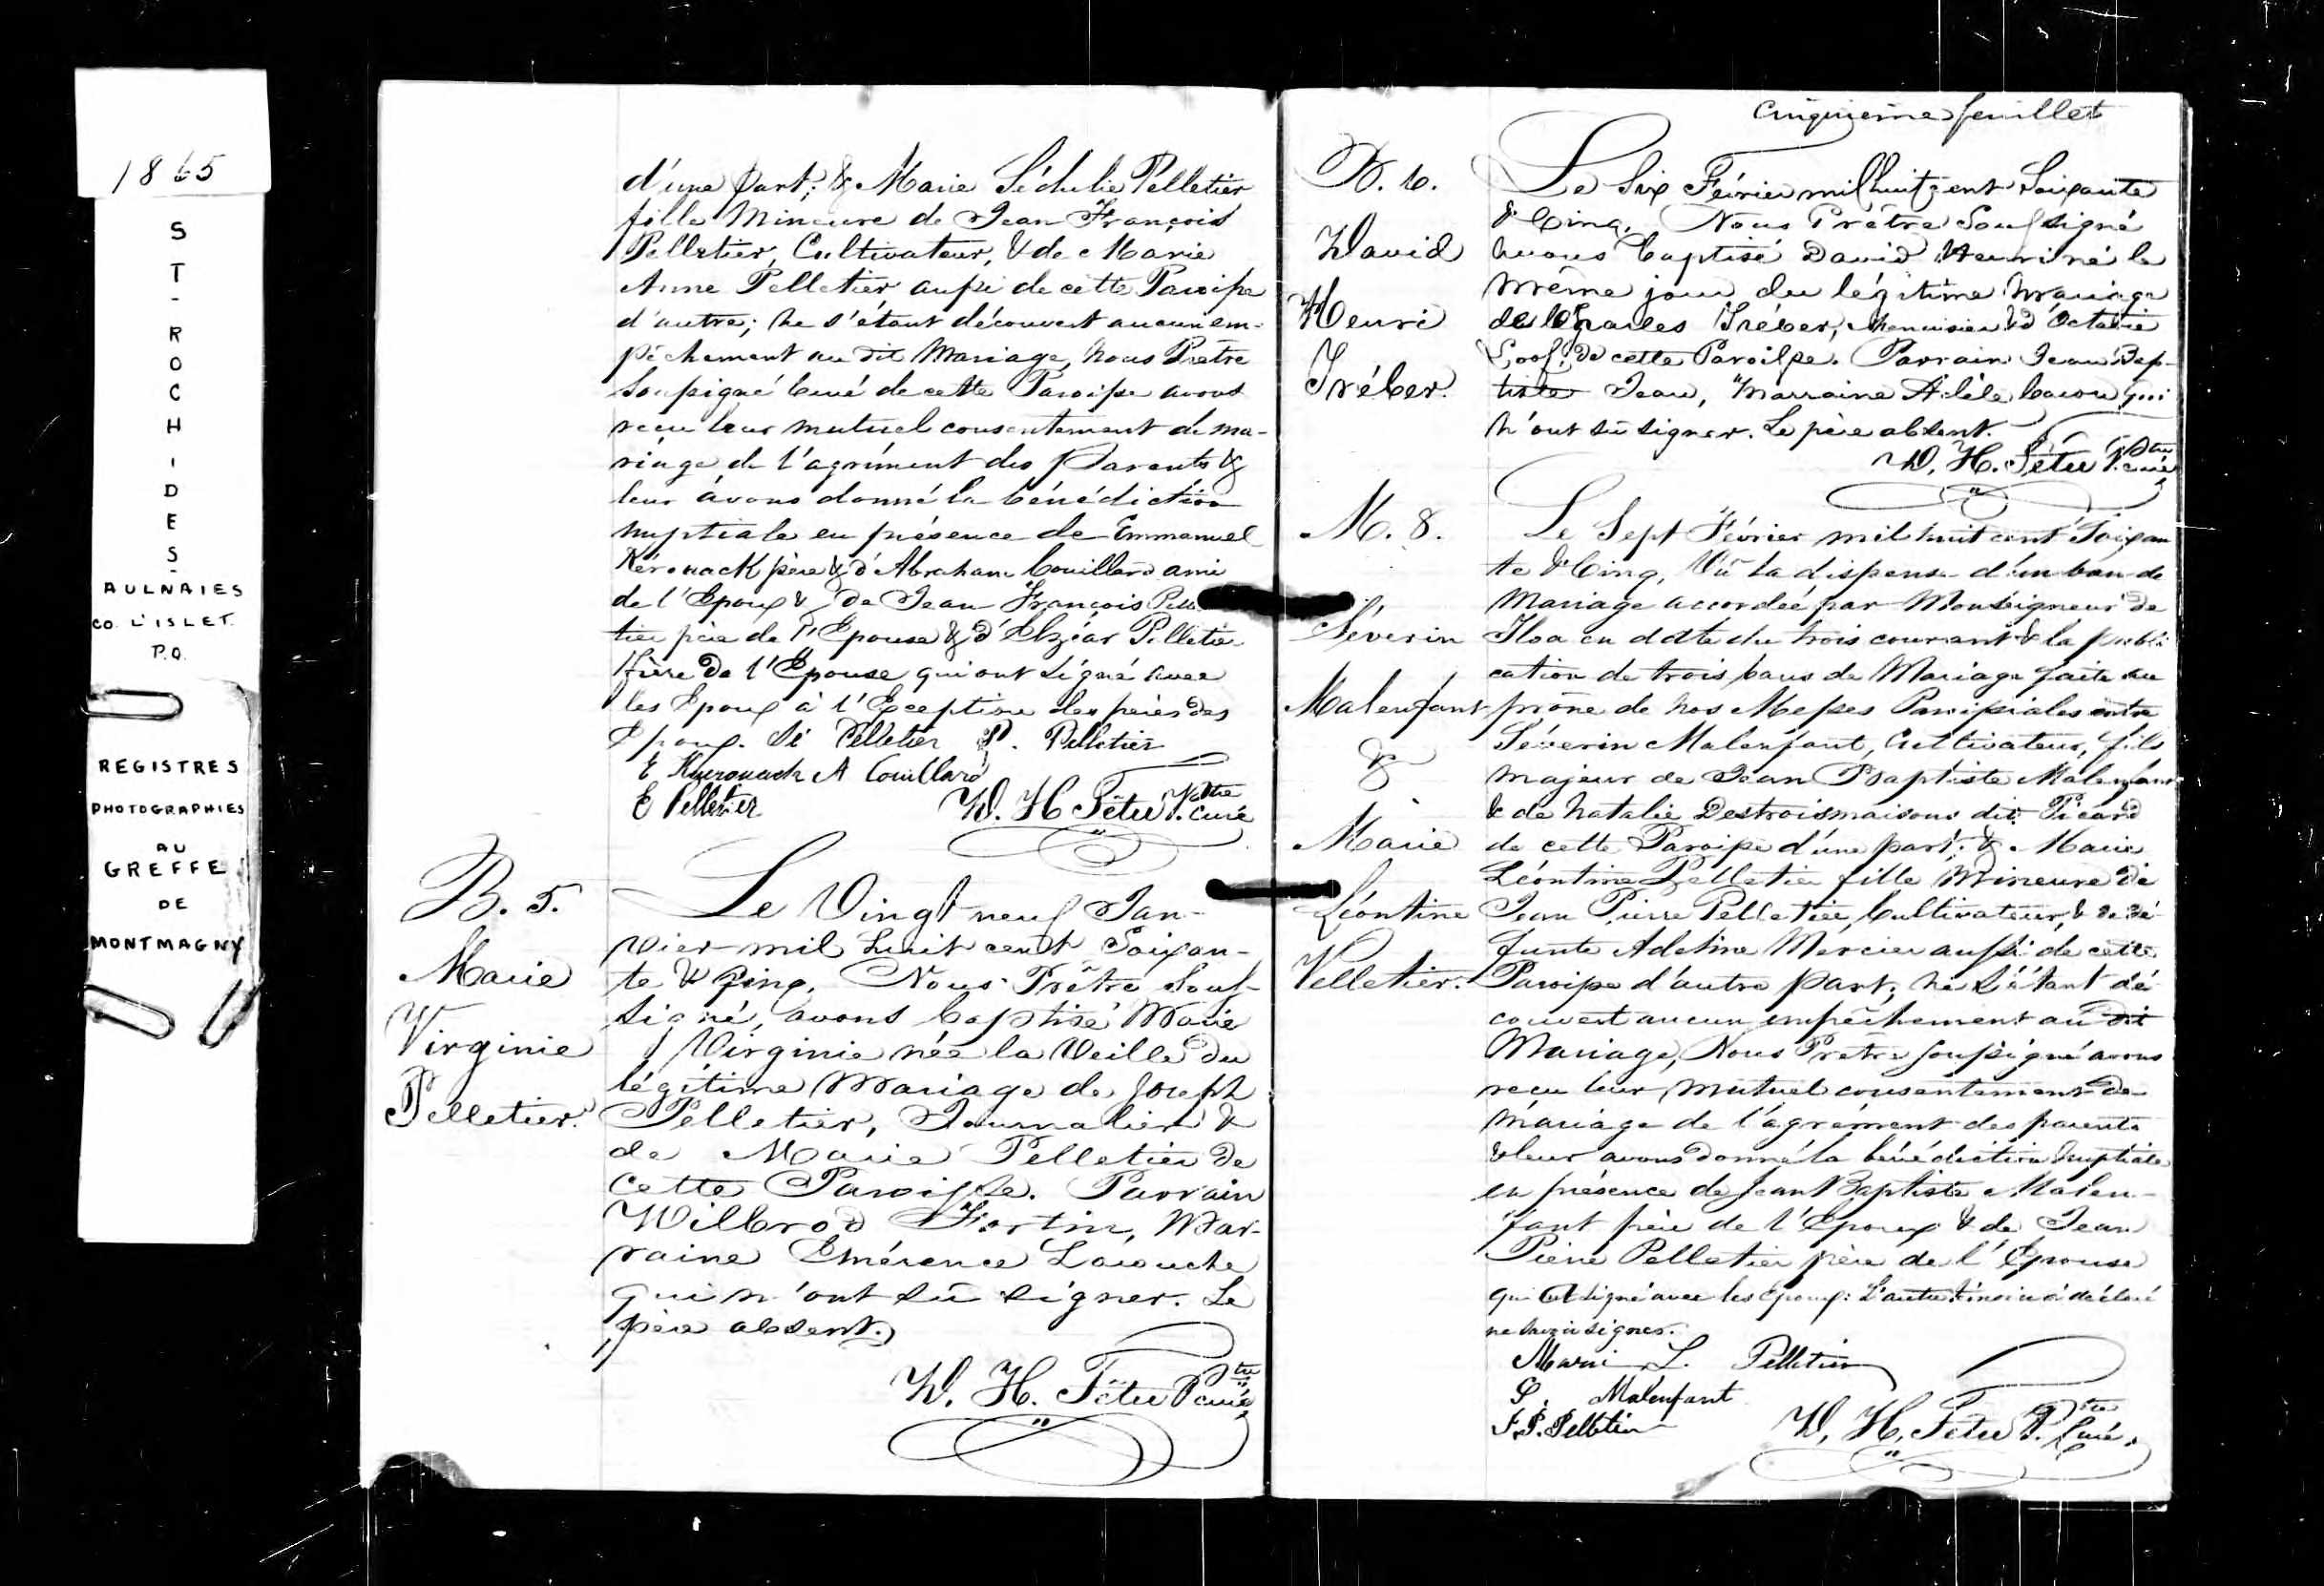 1865
S
T
-
R
O
C
H
-
D
E
S
-
AULNAIES
CO. L'ISLET.
P.Q.
REGISTRES
PHOTOGRAPHIES
AU
GREFFE
DE
MONTMAGNY
d'une part; & Marie Sédulie Pelletier
fille Mineure de Jean François
Pelletier, Cultivateur, & de Marie
Anne Pelletier aussi de cette Paroisse
d'autre; ne s'étant découvert aucun em-
pêchement au dit Mariage, nous Prêtre
Soussigné Curé de cette Paroisse avons
reçu leur mutuel consentement de ma-
riage de l'agrément des Parents &
leur avons donné la bénédiction
nuptiale en présence de Emmanuel
Kérouack père & d'Abraham Couillard ami
de l'Epoux & de Jean François Pelle
tier père de l'Epouse & d'Elzéar Pelletier
frère de l'Epouse qui ont signé avec
les Epoux à l'Exception des pères des
Epoux. Sé Pelletier P. Pelletier
E Kuerouack A Couillard
E Pelletier W. H Têtu Ptre curé
B. 5.
Marie
Virginie
Pelletier.
Le Vingt neuf Jan-
vier mil huit cent Soixan-
te & Cinq. Nous Prêtre Sous-
signé, avons baptisé Marie
Virginie née la Veille du
légitime Mariage de Joseph
Pelletier, Journalier &
de Marie Pelletier de
cette Paroisse. Parrain
Wilbrod Fortin, Mar-
raine Emérence Larouche
qui n'ont sû signer. Le
père absent.
W. H. Têtu Ptre curé
Cinquième feuillet
B. 6.
David
Henri
Tréber.
Le Six Février mil huit cent Soixante
& Cinq, Nous Prêtre Soussigné
avons baptisé David Henri né le
même jour du légitime Mariage
de Charles Tréber, Menuisier & d'Octavie
de cette Paroisse. Parrain Jean Bap-
tiste Jean, Marraine Adèle Caron qui
n'ont sû signer. Le père absent.
W. H. Têtu Ptre curé
M. 8.
Séverin
Malenfant
&
Marie
Léontine
Pelletier.
Le Sept Février mil huit cent Soixan
te & Cinq, Vû la dispense d'un ban de
Mariage accordée par Monseigneur de
Tloa en date du trois courant & la publi
cation de trois bans de Mariage faite au
prône de nos Messes Paroissiales entre
Séverin Malenfant, Cultivateur, fils
majeur de Jean Baptiste Malenfant
& de Natalie Destroismaisons dit Picard
de cette Paroisse d'une part; & Marie
Léontine Pelletier fille Mineure de
Jean Pierre Pelletier, Cultivateur, & de dé
funte Adeline Mercier aussi de cette
Paroisse d'autre part; ne s'étant dé
couvert aucun empêchement au dit
Mariage, Nous Prêtre soussigné avons
reçu leur mutuel consentement de
mariage de l'agrément des parents
& leur avons donné la bénédiction nuptiale
en présence de Jean Baptiste Malen-
fant père de l'Epoux & de Jean
Pierre Pelletier père de l'Epouse
qui a signé avec les époux: L'autre témoin a déclaré
ne savoir signer.
Marie L. Pelletier
S. Malenfant
J. P. Pelletier W. H. Têtu Ptre Curé.